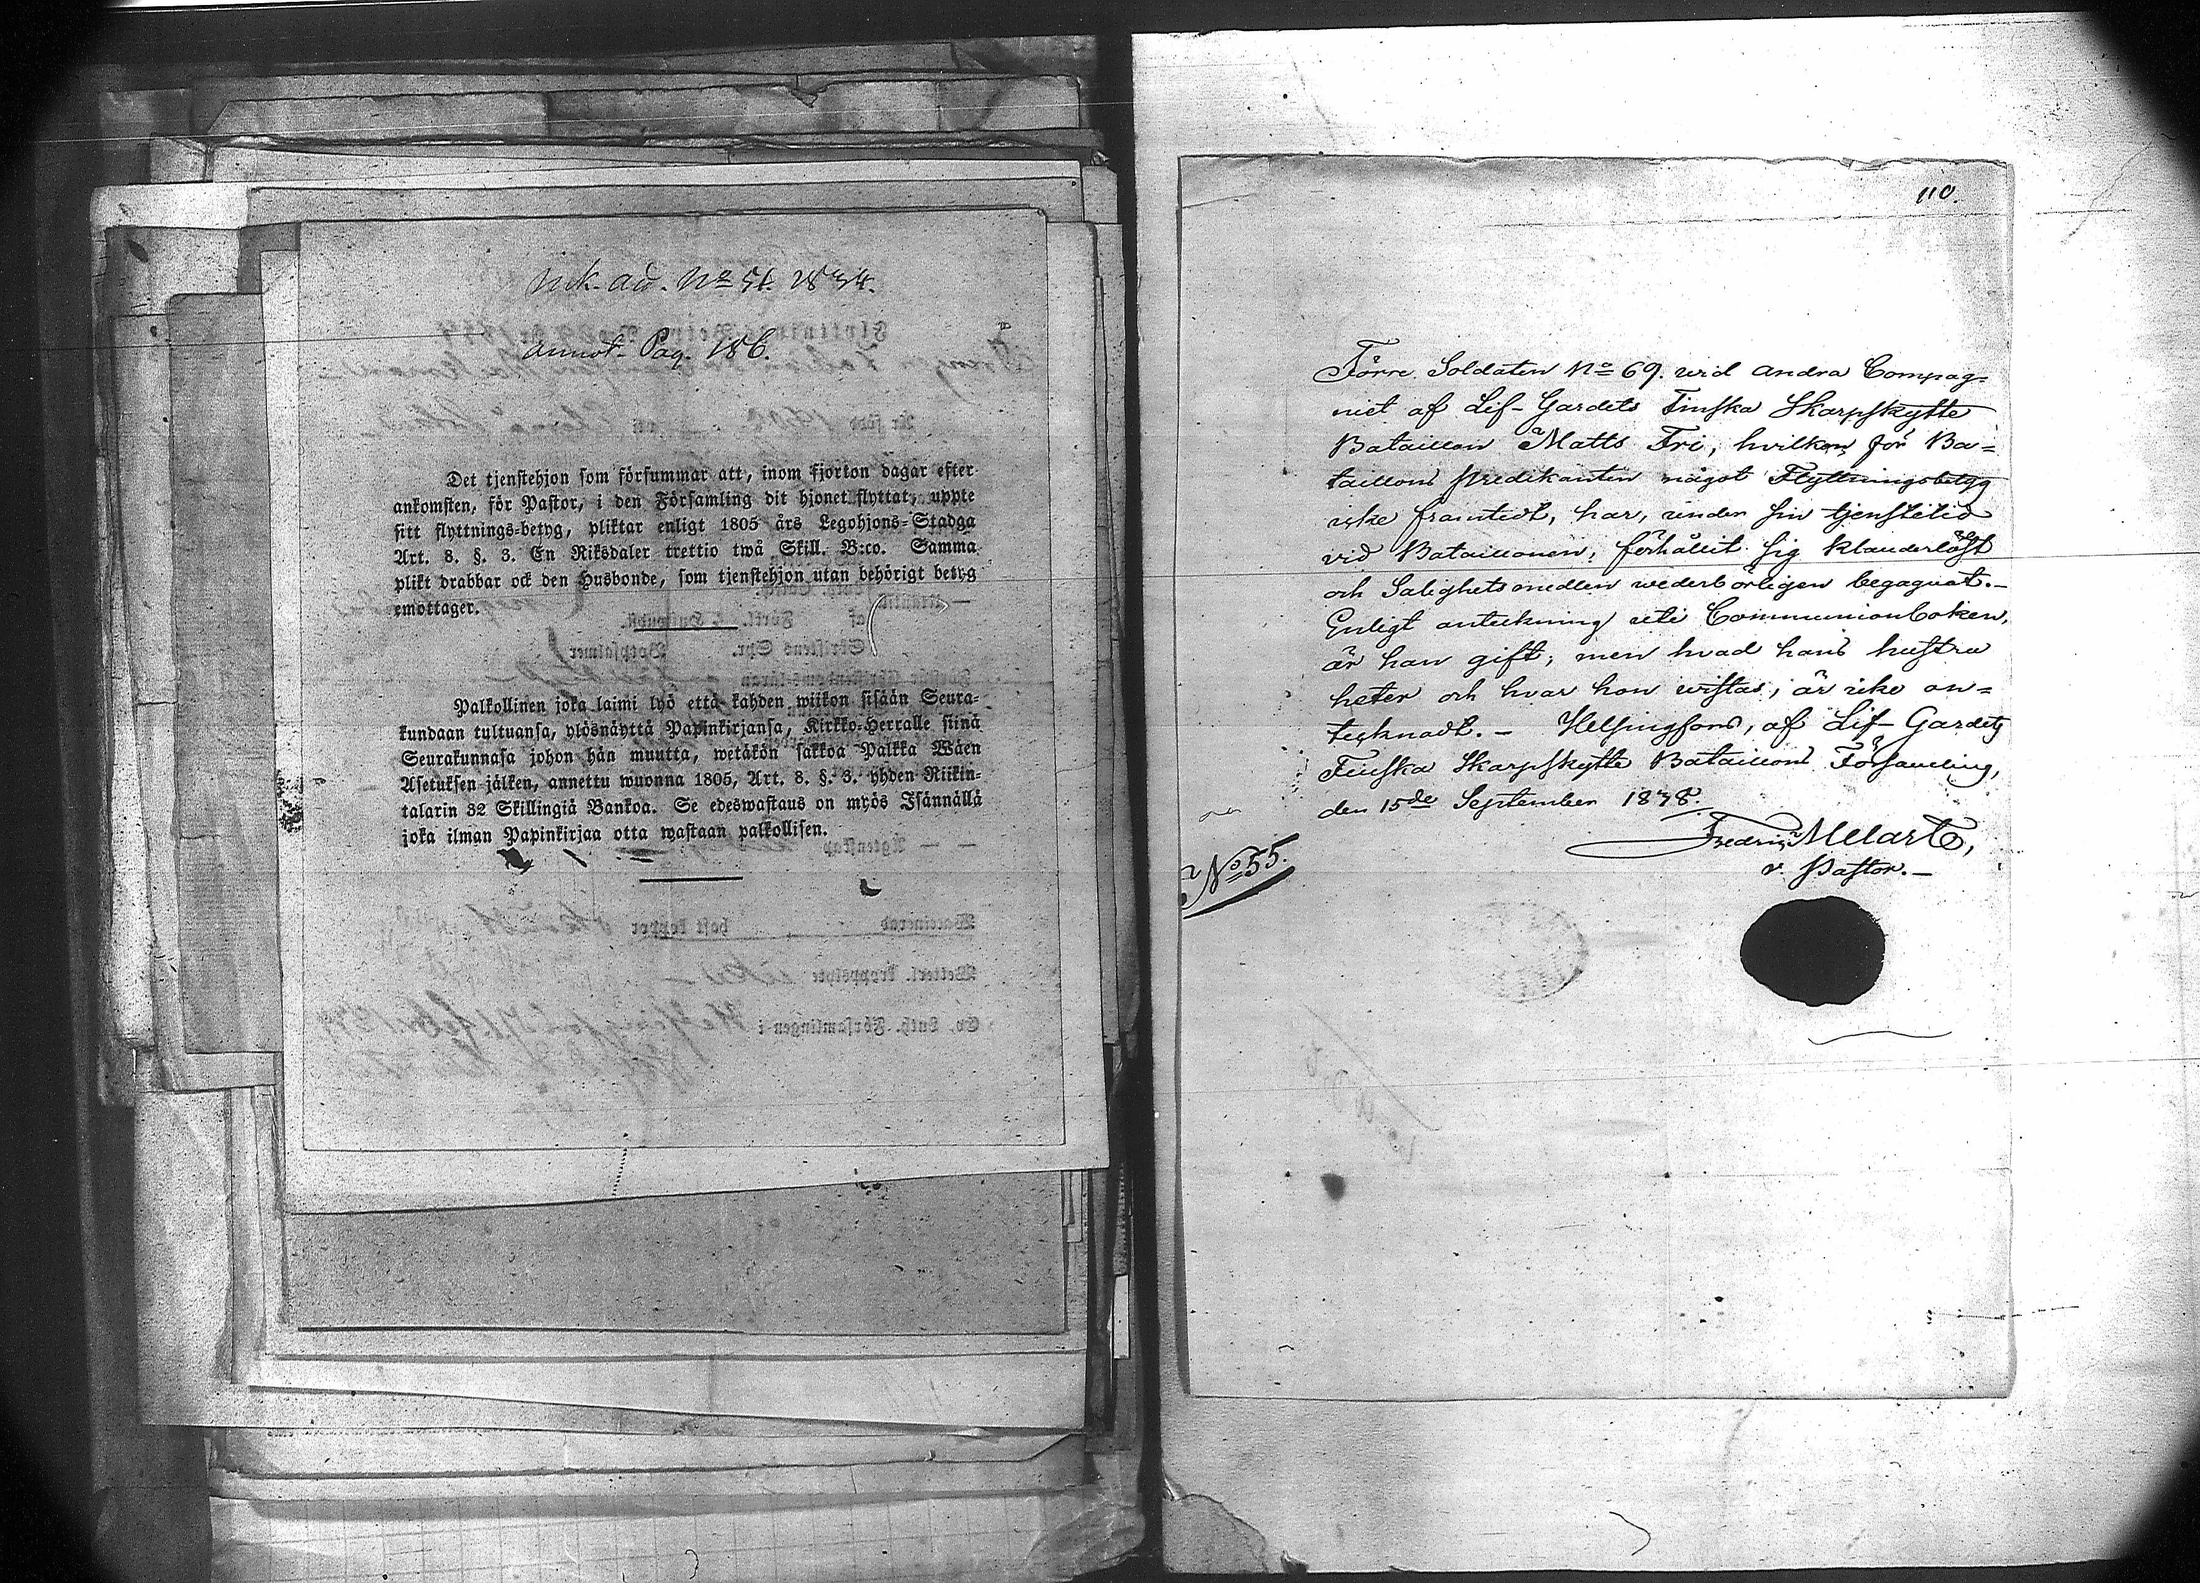 Ink. ad. No 51. 1834.
annot. Pag. 186.
Det tjenstehjon som försummar att, inom fjorton dagar efter
ankomsten, för Pastor, i den Församling dit hjonet flyttat, uppte
sitt flyttnings-betyg, pliktar enligt 1805 års Legohjons-Stadga
Art. 8. §. 3. En Riksdaler trettio twå Skill. B:co. Samma
plikt drabbar ock den Husbonde, som tjenstehjon utan behörigt betyg
emottager.
Palkollinen joka laimi lyö että kahden wiikon sisään Seura-
kundaan tultuansa, ylösnäyttä Papinkirjansa, Kirkko-Herralle siinä
Seurakunnasa johon hän muutta, wetäkön sakkoa Palkka Wäen
Asetuksen jälken, annettu wuonna 1805, Art. 8. §. 3. yhden Riikin-
talarin 32 Skillingiä Bankoa. Se edeswastaus on myös Isännällä
joka ilman Papinkirjaa otta wastaan palkollisen.
110.
Förre Soldaten No 69. wid andra Compag=
niet af Lif-Gardets Finska Skarpskytte
Bataillon Matts Fri, hvilken för Ba=
taillons Predikanten något Flyttningsbetyg
icke framtedt, har, under sin tjenstetid
vid Bataillonen, förhållit sig klanderlöst
och Salighetsmedlen wederbörligen begagnat.-
Enligt anteckning uti Communionboken,
är han gift; men hvad hans hustru
heter och hvar hon wistas, är icke an=
tecknadt. - Helsingfors, af Lif-Gardets
Finska Skarpskytte Bataillons Församling,
den 15de September 1838.
Fredric Melart,
v. Pastor. -
No 55.